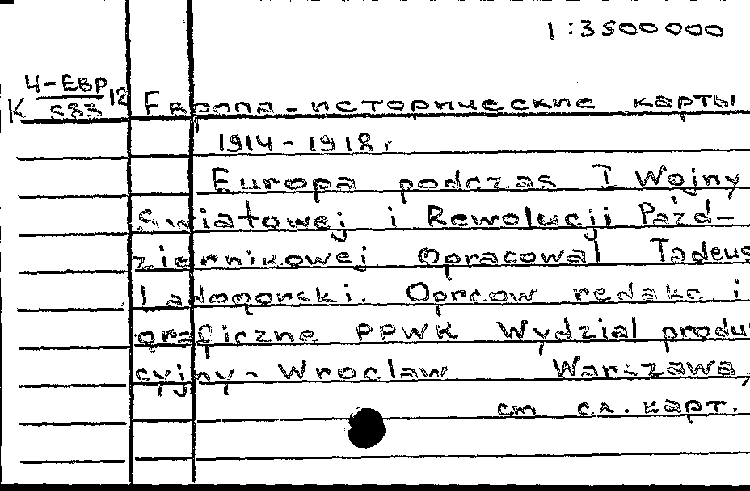 1:3500000
4-ЕВР
К 583 12 Европа - исторические карты
1914-1918 г.
Europa podczas I Wojny
Światowej i Rewolucji Paźd-
ziernikowej Opracował Tadeus
Ładogórski. Opracow redakc i
graficzne PPWK Wydział produk
cyjny - Wrocław Warszawa,
см сл. карт.